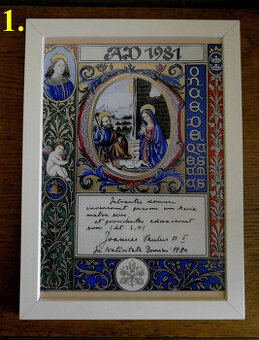 1.
AD 1981
Intrantes domum
invenerunt puerum cum Maria
matre eius
et procidentes adoraverunt
eum (Mt. 2,11)
Joannes Paulus II
In Nativitate Domini 1981